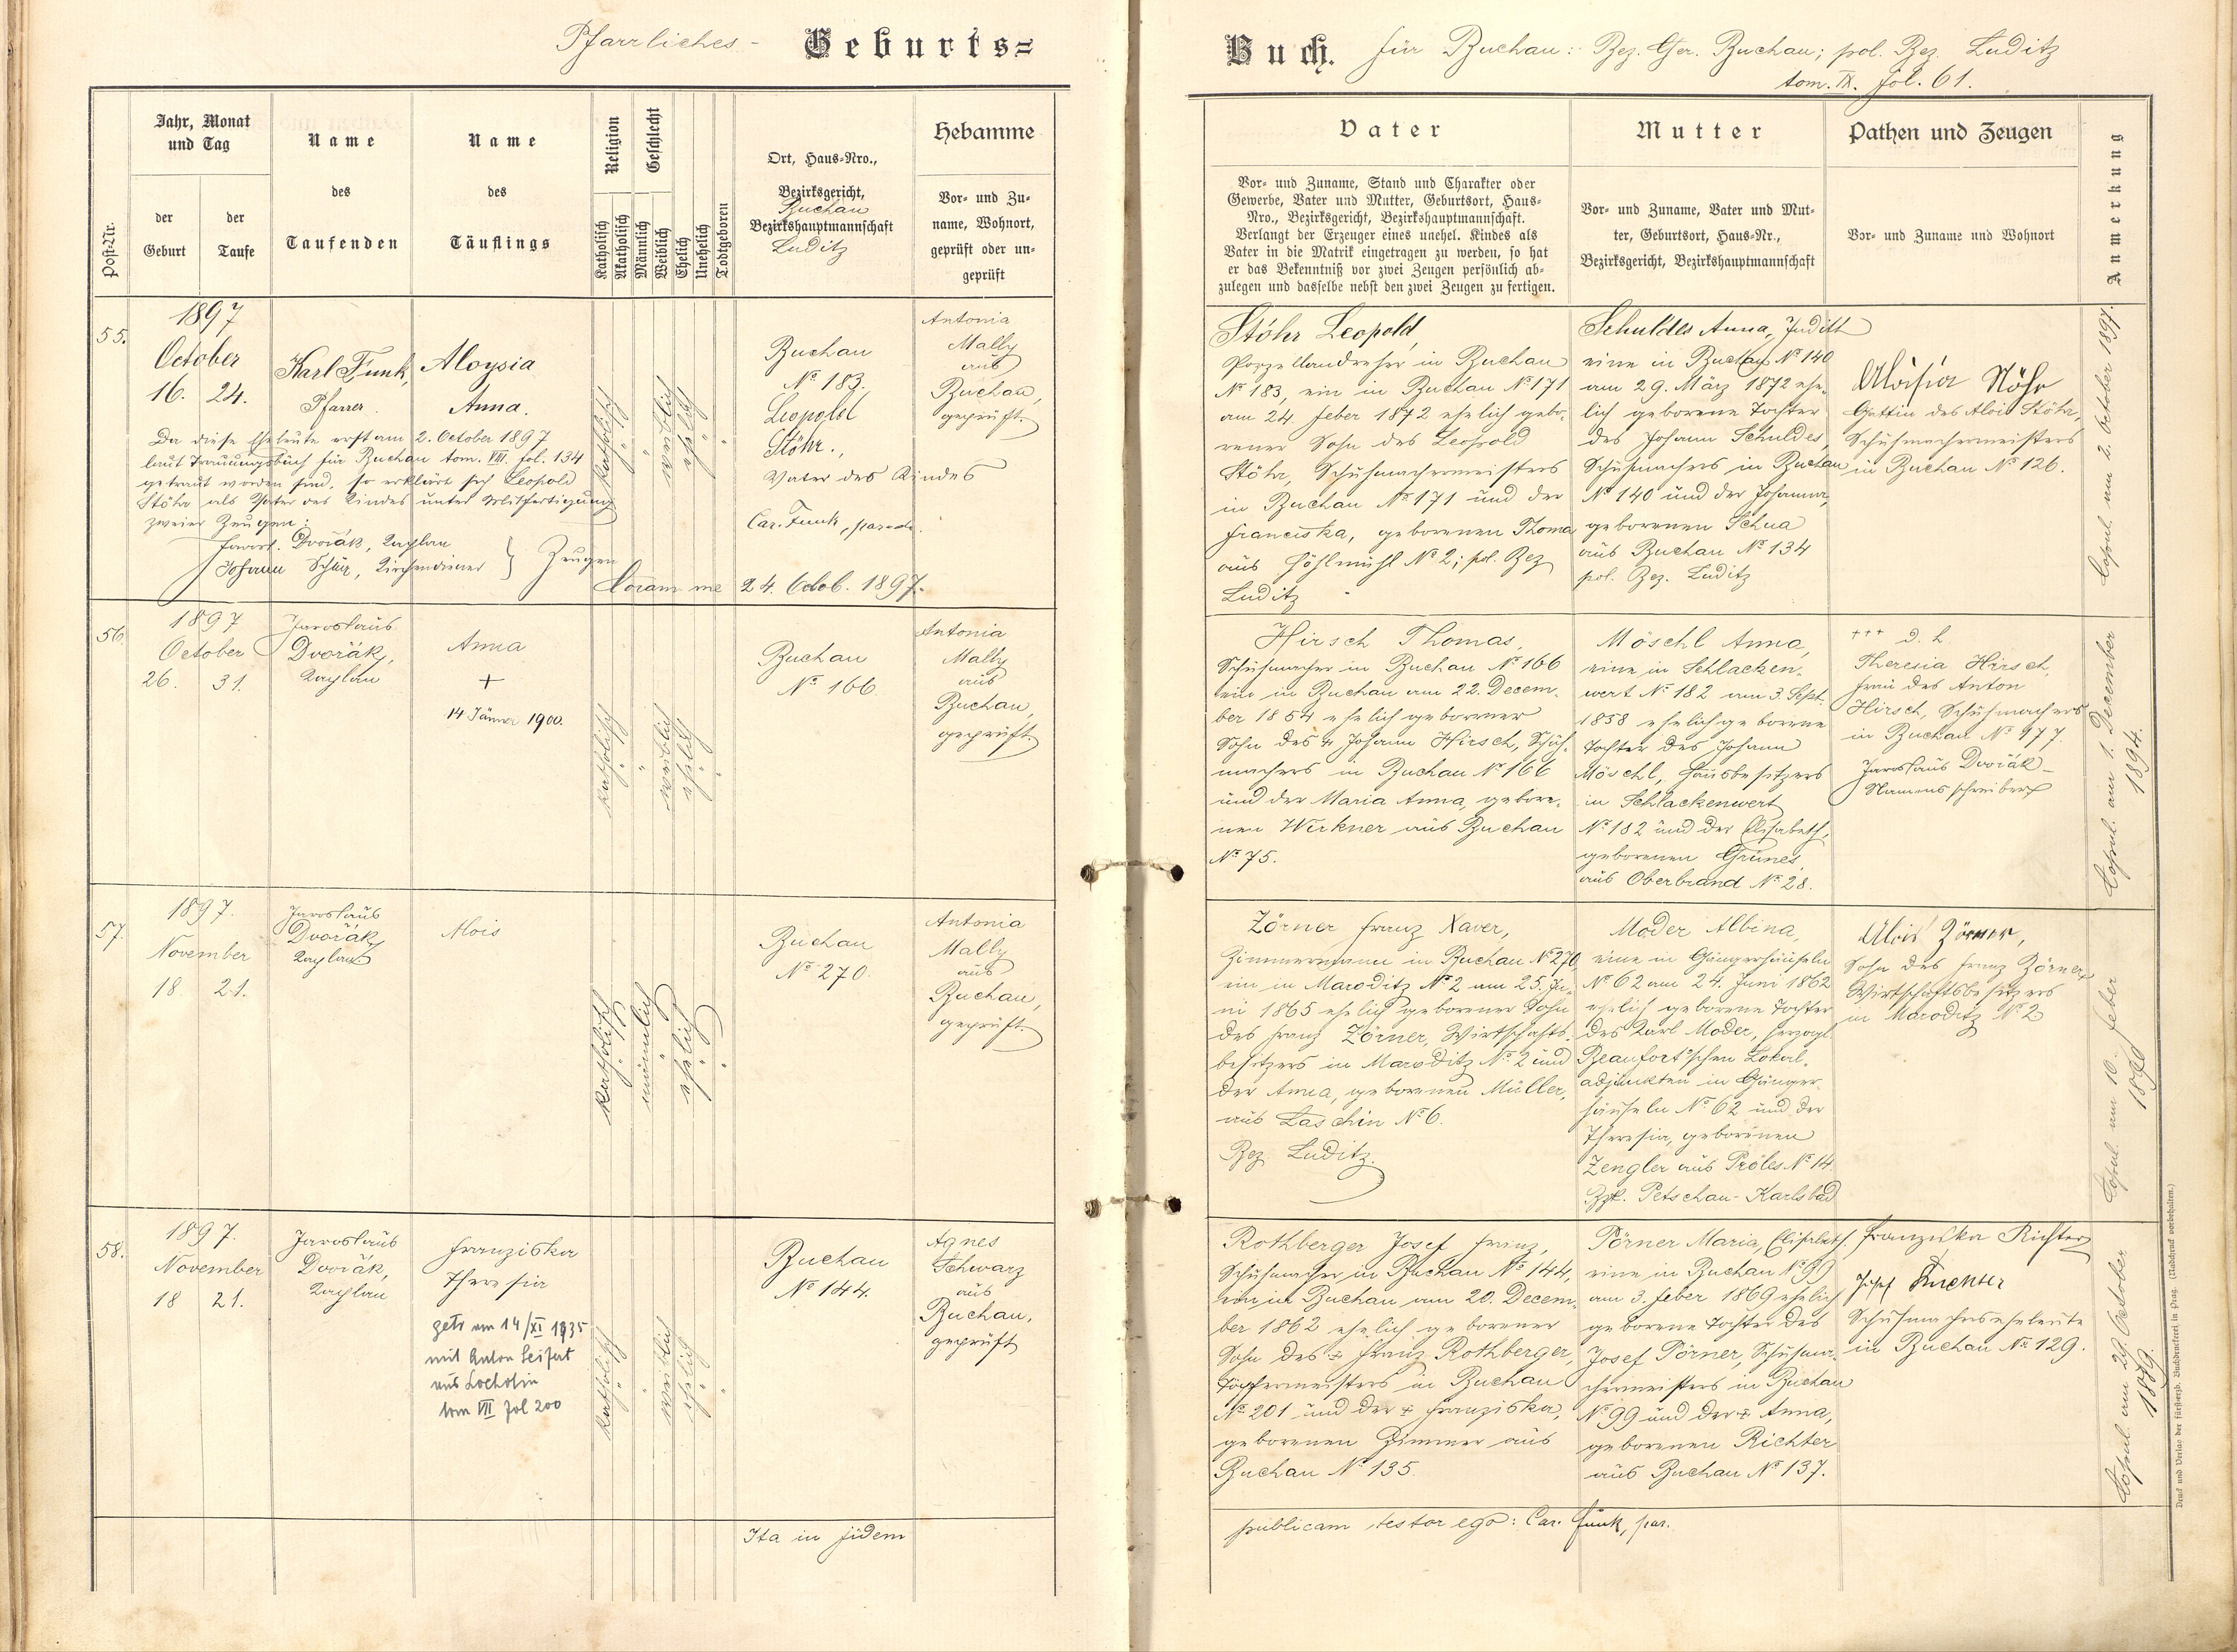 Pfarrliches - Geburts=
Jahr, Monat
und Tag
Name
Name
Religion
Geschlecht
Ort, Haus=Nro.,
Hebamme
Post=Nr.
der
Geburt
der
Taufe
des
Taufenden
des
Täuflings
Katholisch
Akatholisch
Männlich
Weiblich
Ehelich
Unehelich
Todtgeboren
Bezirksgericht,
Buchau
Bezirkshauptmannschaft
Luditz
Vor= und Zu=
name, Wohnort,
geprüft oder un=
geprüft
55.
1897
October
16. 24.
Karl Funk,
Pfarrer.
Aloysia
Anna.
Da diese Eheleute erst am 2. October 1897
laut Trauungsbuch für Buchau tom. VIII. fol. 134
getraut worden sind, so erklärt sich Leopold
Stöhr als Vater des Kindes unter Mitfertigung
zweier Zeugen:
Jarosl. Dvořák, Kaplan
Johann Schür, Kirchendiener } Zeugen
katholisch
"
"
weiblich
ehelich
"
"
Buchau
Nº 183.
Leopold
Stöhr.,
Vater des Kindes
Car. Funk, par.
Coram me 24. Octob. 1897.
Antonia
Mally
aus
Buchau,
geprüft.
56.
1897
October
26. 31.
Jaroslaus
Dvořák,
Kaplan
Anna
+
14 Jänner 1900.
katholisch
"
"
weiblich
ehelich
"
"
Buchau
Nº 166.
Antonia
Mally
aus
Buchau,
geprüft.
57.
1897.
November
18. 21.
Jaroslaus
Dvořák,
Kaplan
Alois
katholisch
"
männlich
"
ehelich
"
"
Buchau
Nº 270.
Antonia
Mally
aus
Buchau,
geprüft.
58.
1897.
November
18 21.
Jaroslaus
Dvořák,
Kaplan
Franziska
Theresia
getr am 14/XI 1935
mit Anton Seifert
aus Locholin
tom VII fol 200
katholisch
"
"
weiblich
ehelich
"
"
Buchau
Nº 144.
Agnes
Schwarz
aus
Buchau,
geprüft
Ita in fidem
Buch. für Buchau: Bez. Ger. Buchau; pol. Bez. Luditz
tom. IX. fol. 61.
Vater
Mutter
Pathen und Zeugen
Anmerkung
Vor= und Zuname, Stand und Charakter oder
Gewerbe, Vater und Mutter, Geburtsort, Haus=
Nro., Bezirksgericht, Bezirkshauptmannschaft.
Verlangt der Erzeuger eines unehel. Kindes als
Vater in die Matrik eingetragen zu werden, so hat
er das Bekenntniß vor zwei Zeugen persönlich ab=
zulegen und dasselbe nebst den zwei Zeugen zu fertigen.
Vor= und Zuname, Vater und Mut=
ter, Geburtsort, Haus=Nr.,
Bezirksgericht, Bezirkshauptmannschaft
Vor= und Zuname und Wohnort
Stöhr Leopold,
Porzellandreher in Buchau
Nº 183, ein in Buchau Nº 171
am 24. Feber 1872 ehelich gebo-
rener Sohn des Leopold
Stöhr, Schuhmachermeisters
in Buchau Nº 171 und der
Franciska, geborenen Thoma
aus Höhlmühl Nº 2; pol. Bez
Luditz
Schuldes Anna, Judith
eine in Buchau Nº 140
am 29. März 1872 ehe-
lich geborene Tochter
des Johann Schuldes,
Schuhmachers in Buchau
Nº 140 und der Johanna,
geborenen Schua
aus Buchau Nº 134
pol. Bez. Luditz
Aloisia Stöhr
Gattin des Alois Stöhr,
Schuhmachermeisters
in Buchau Nº 126.
Copul. am 2. October 1897.
Hirsch Thomas,
Schuhmacher in Buchau Nº 166
ein in Buchau am 22. Decem-
ber 1854 ehelich geborener
Sohn des + Johann Hirsch, Schuh-
machers in Buchau Nº 166
und der Maria Anna, gebore-
nen Wirkner aus Buchau
Nº 75.
Möschl Anna,
eine in Schlacken-
wert Nº 182 am 3. Sept.
1858 ehelich geborene
Tochter des Johann
Möschl, Hausbesitzers
in Schlackenwert
Nº 182 und der Elisabeth,
geborenen Grünes
aus Oberbrand Nº 28.
+++ d. h.
Theresia Hirsch,
Frau des Anton
Hirsch, Schuhmachers
in Buchau Nº 977
Jaroslaus Dvořák -
Namensschreiber
Copul. am 1. December
1894.
Zörner Franz Xaver,
Zimmermann in Buchau Nº 270,
ein in Maroditz Nº 2 am 25. Ju-
ni 1865 ehelich geborener Sohn
des Franz Zörner, Wirtschafts-
besitzers in Maroditz Nº 2 und
der Anna, geborenen Müller,
aus Laschin Nº 6.
Bez. Luditz.
Moder Albina,
eine in Gängerhäuseln
Nº 62 am 24. Juni 1862
ehelich geborene Tochter
des Karl Moder, herzogl.
Beaufort'schen Lokal-
adjunkten in Gänger-
häuseln Nº 62 und der
Theresia, geborenen
Zengler aus Pröles Nº 14
Bzk. Petschau-Karlsbad
Alois Zörner,
Sohn des Franz Zörner,
Wirtschaftsbesitzers
in Maroditz Nº 2
Copul. am 10. Feber
Rothberger Josef Franz,
Schuhmacher in Buchau Nº 144,
ein in Buchau am 20. Decem-
ber 1862 ehelich geborener
Sohn des + Franz Rothberger,
Töpfermeisters in Buchau
Nº 201 und der + Franziska,
geborenen Zimmer aus
Buchau Nº 135.
Pörner Maria, Elisabeth
eine in Buchau Nº 99
am 3. Feber 1869 ehelich
geborene Tochter des
Josef Pörner, Schuhma-
chermeisters in Buchau
Nº 99 und der + Anna,
geborenen Richter
aus Buchau Nº 137.
Franziska Richter
Josef Richter
Schuhmacherseheleute
in Buchau Nº 129.
Copul. am 29. October
1889.
publicam testor ego: Car. Funk, par.
Druck und Verlag der fürsterzb. Buchdruckerei in Prag. (Nachdruck vorbehalten.)